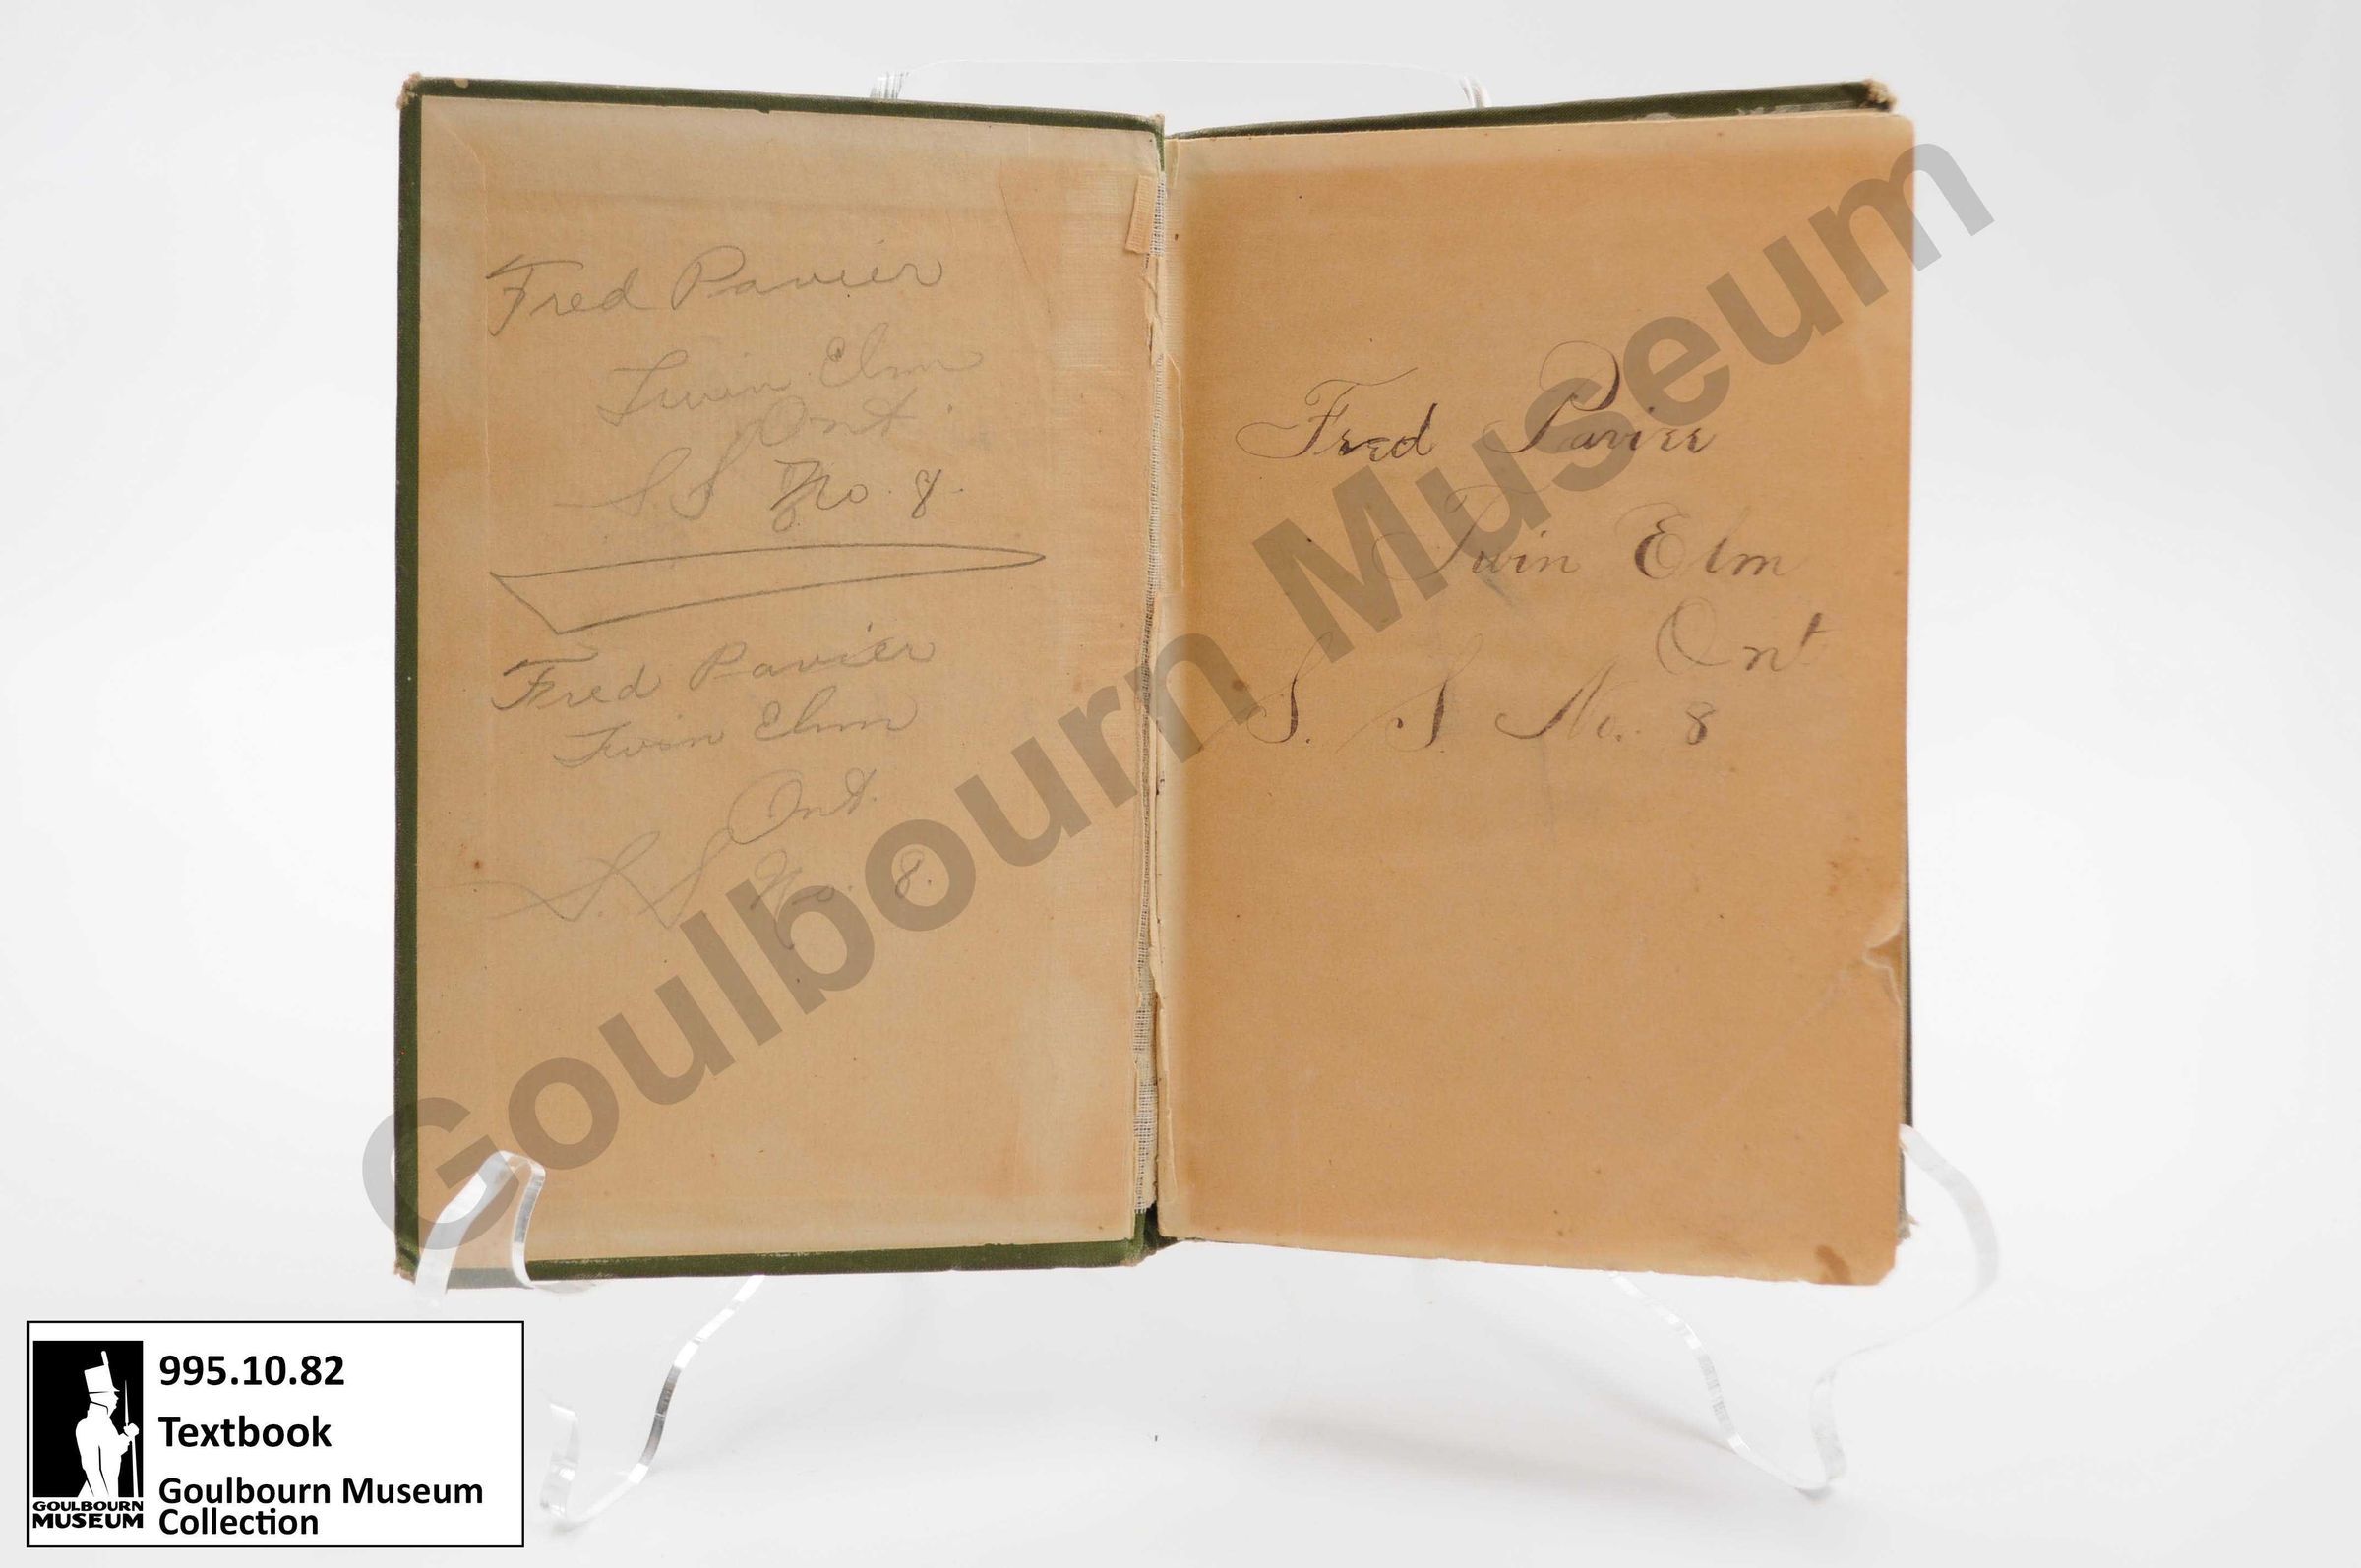 Fred Pavier
Twin Elm
Ont.
S.S No. 8.
Fred Pavier
Twin Elm
Ont.
S. S No. 8.
Fred Pavier
Twin Elm
Ont
S. S. No. 8
Goulbourn Museum
995.10.82
Textbook
Goulbourn Museum
Collection
GOULBOURN
MUSEUM